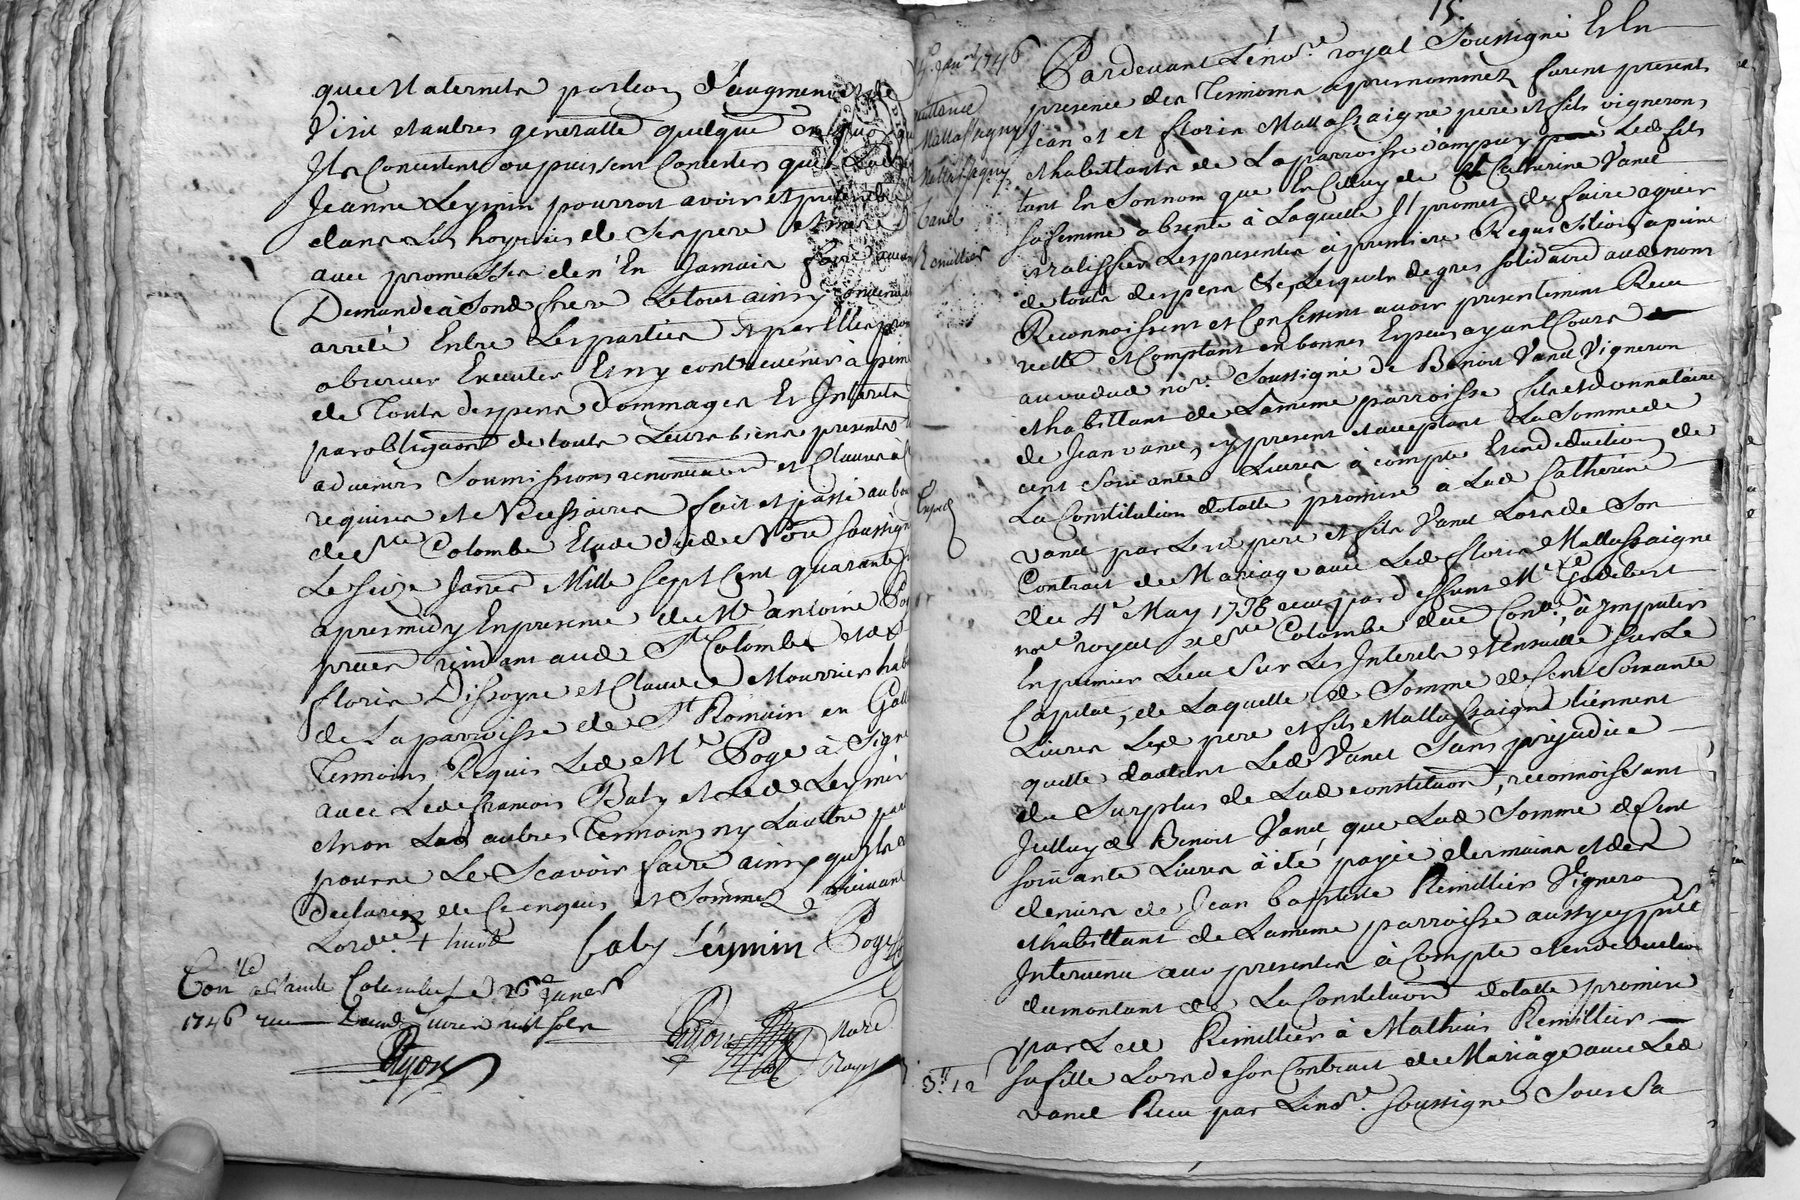 que Maternels portion d'augment de
Vivie et autres generallem quelque
Ils Consistent ou puissent Consister que Lad
Jeanne Leymin pourroit avoir et pretendre
dans Les hoyries de Ses pere et mere
avec promesses de n'En Jamais faire
Demande à Sond frere Le tout ainsy convenu
arreté Entre Les parties et par Elles promis
observer Executer Et n'y contrevenir à peine
de Touts despens Dommages Et Interets
par obligaon de touts Leurs biens presents
advenirs Soumissions renonciaons et Clauses
requises et Necessaires fait et passé au bourg
de Ste Colombe Etude dud Nore soussigné
Le seize Janer Mille Sept Cent quarante six
apres midy En presence de Me antoine Poge
resident aud Ste Colombe et de
floris Dissoyne et Claude Mourrier hab
de La parroisse de St Romain en Gall
Temoins Requis Led Me Poge à Signé
avec Led francois Baby et Led Leymin
et non Les autres Temoins ny Lautre partie
pour ne Le Scavoir faire ainsy quils ont
Declarer de Ce enquis et Sommez Suivant
Lordce
baby Leymin Poge
Conlle a Sainte Colombe Le 26e Janer
1746 recu Livres huit sols
Guyon
Guyon Nore
Royal
15.
1746
Quittance
Mallassagny
Mallassagny
Vanel
Remillier
Exped
3ll 12
Pardevant Le nore royal Soussigné Et En
presence des Temoins apres nommez furent presents
Jean et et floris Mallassaigne pere et fils vignerons
et habittants de La parroisse d'ampuy Led fils
tant En Son nom que En Celluy de Catherine Vanel
sa femme absente à Laquelle Il promet de faire agréer
et ratiffier Les presentes à premiere Requisition à peine
de touts despens &c, Lesquels de gres solidaire aud nom
Reconnoissent et Confessent avoir presentement Recu
reelle et Comptant en bonnes Especes ayant Cours
au vu dud nore. Soussigné de Benoit Vanel Vigneron
et habittant de La meme parroisse fils et donnataire
de Jean vanel, cy present et acceptant La Somme de
cent Soixante Livres à compte Et en deduction de
La Constitution dotalle promise à Lad Catherine
vanel par Lesd pere et fils Vanel Lors de Son
Contrait de Mariage avec Led floris Mallassaigne
du 4e May 1738 recu par deffunt Me Godebert
nore royal de Ste Colombe dud Cont., à Imputer
En premier Lieu Sur Les Interets et Ensuitte Sur Le
Capital, de Laquelle de Somme de Cent Soixante
Livres Lesd pere et fils Mallassaigne tiennent
quitte d'autant Led Vanel Sans prejudice
du Surplus de Lad constituon, reconnoissant
Icelluy d Benoit Vanel que Lad Somme de Cent
soixante Livres à été payée des mains et des
deniers de Jean baptiste Remillier Vigneron
et habittant de La meme parroisse aussy cy present
Intervenu aux presentes à Compte et en deduction
du montant de La Constituon dotalle promise
par Led Remillier à Mathieu Remillier
sa fille Lors de son Contrait de Mariage avec Led
vanel Recu par Le nore. soussigné Sous Sa